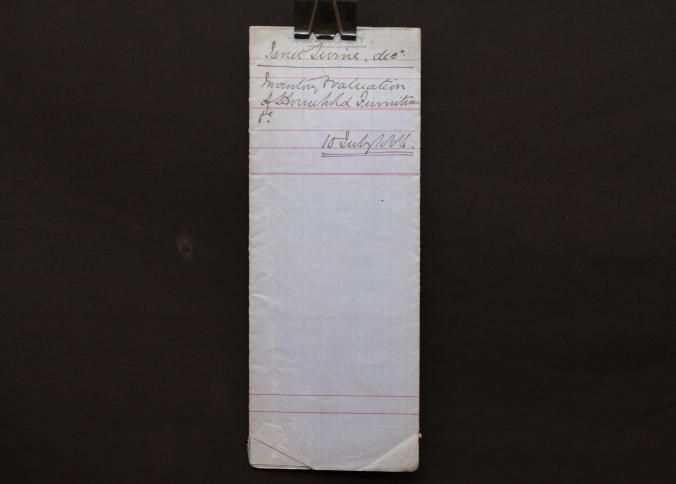 Janet Irvine, decd.
Inventory & valuation
of Household Furniture
&c
10 July 1886.